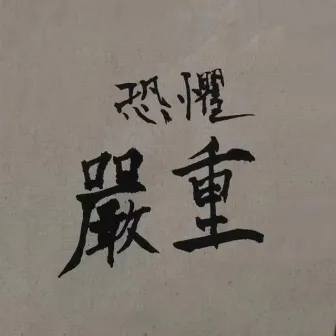 恐懼
嚴重